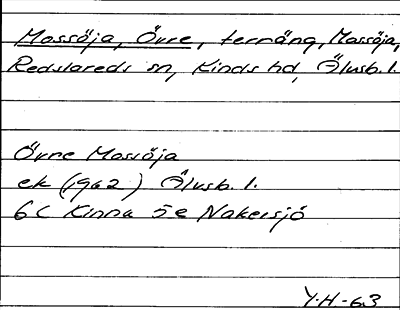 Mossöja, Övre, terräng, Mossöja,
Redslareds sn, Kinds hd, Älvsb. l.
Övre Mossöja
ek (1962) Älvsb. l.
6C Kinna 5e Nakersjö
Y.H-63